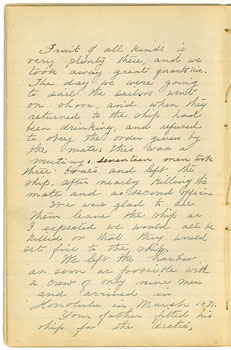 Fruit of all kinds is
very plenty there, and we
took away great quantities.
The day we were going
to sail the sailors went
on shore, and when they
returned to the ship had
been drinking, and refused
to obey the order given by
the mate; this was a
mutiny. seventeen men took
their boxes and left the
ship, after nearly killing the
mate and second officer.
We were glad to see
them leave the ship as
I expected we would all be
killed or that they would
set fire to the ship.
We left the harbor
as soon as possible with
a crew of only nine men
and arrived in
Honolulu in March
Your father fitted his
ship for the Arctic,